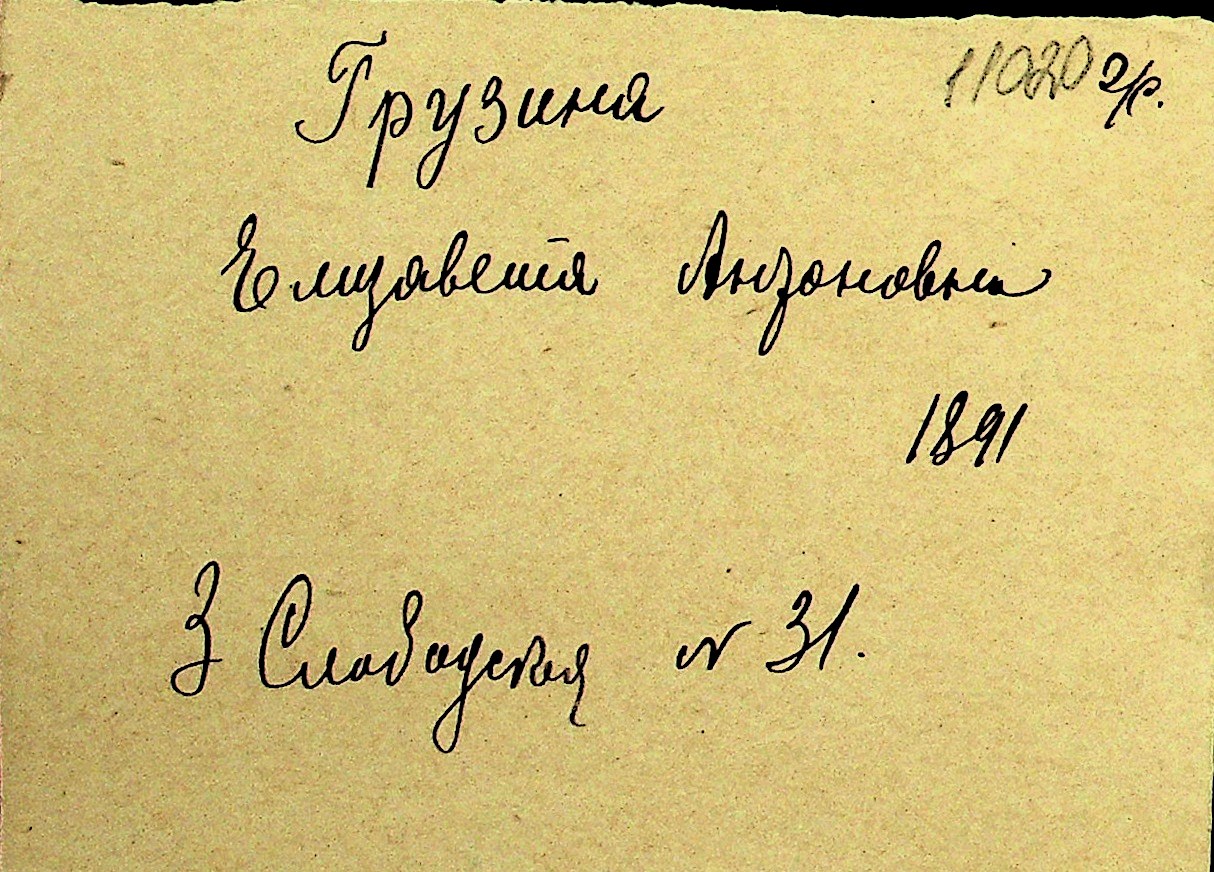 11020 гр.
Грузина
Елизавета Антоновна
1891
3 Слободская № 31.